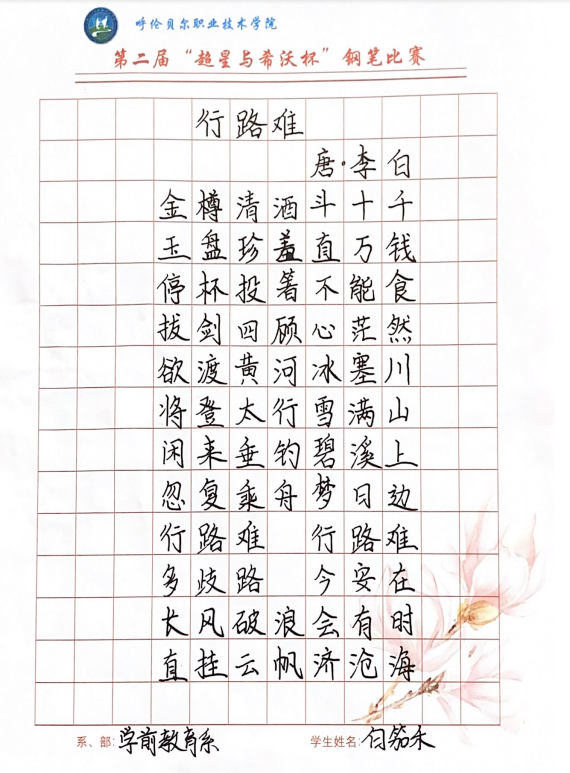 呼伦贝尔职业技术学院
第二届“超星与希沃杯”钢笔比赛
行路难
唐·李白
金樽清酒斗十千
玉盘珍羞直万钱
停杯投箸不能食
拔剑四顾心茫然
欲渡黄河冰塞川
将登太行雪满山
闲来垂钓碧溪上
忽复乘舟梦日边
行路难 行路难
多歧路 今安在
长风破浪会有时
直挂云帆济沧海
系、部: 学前教育系 学生姓名: 白茹禾